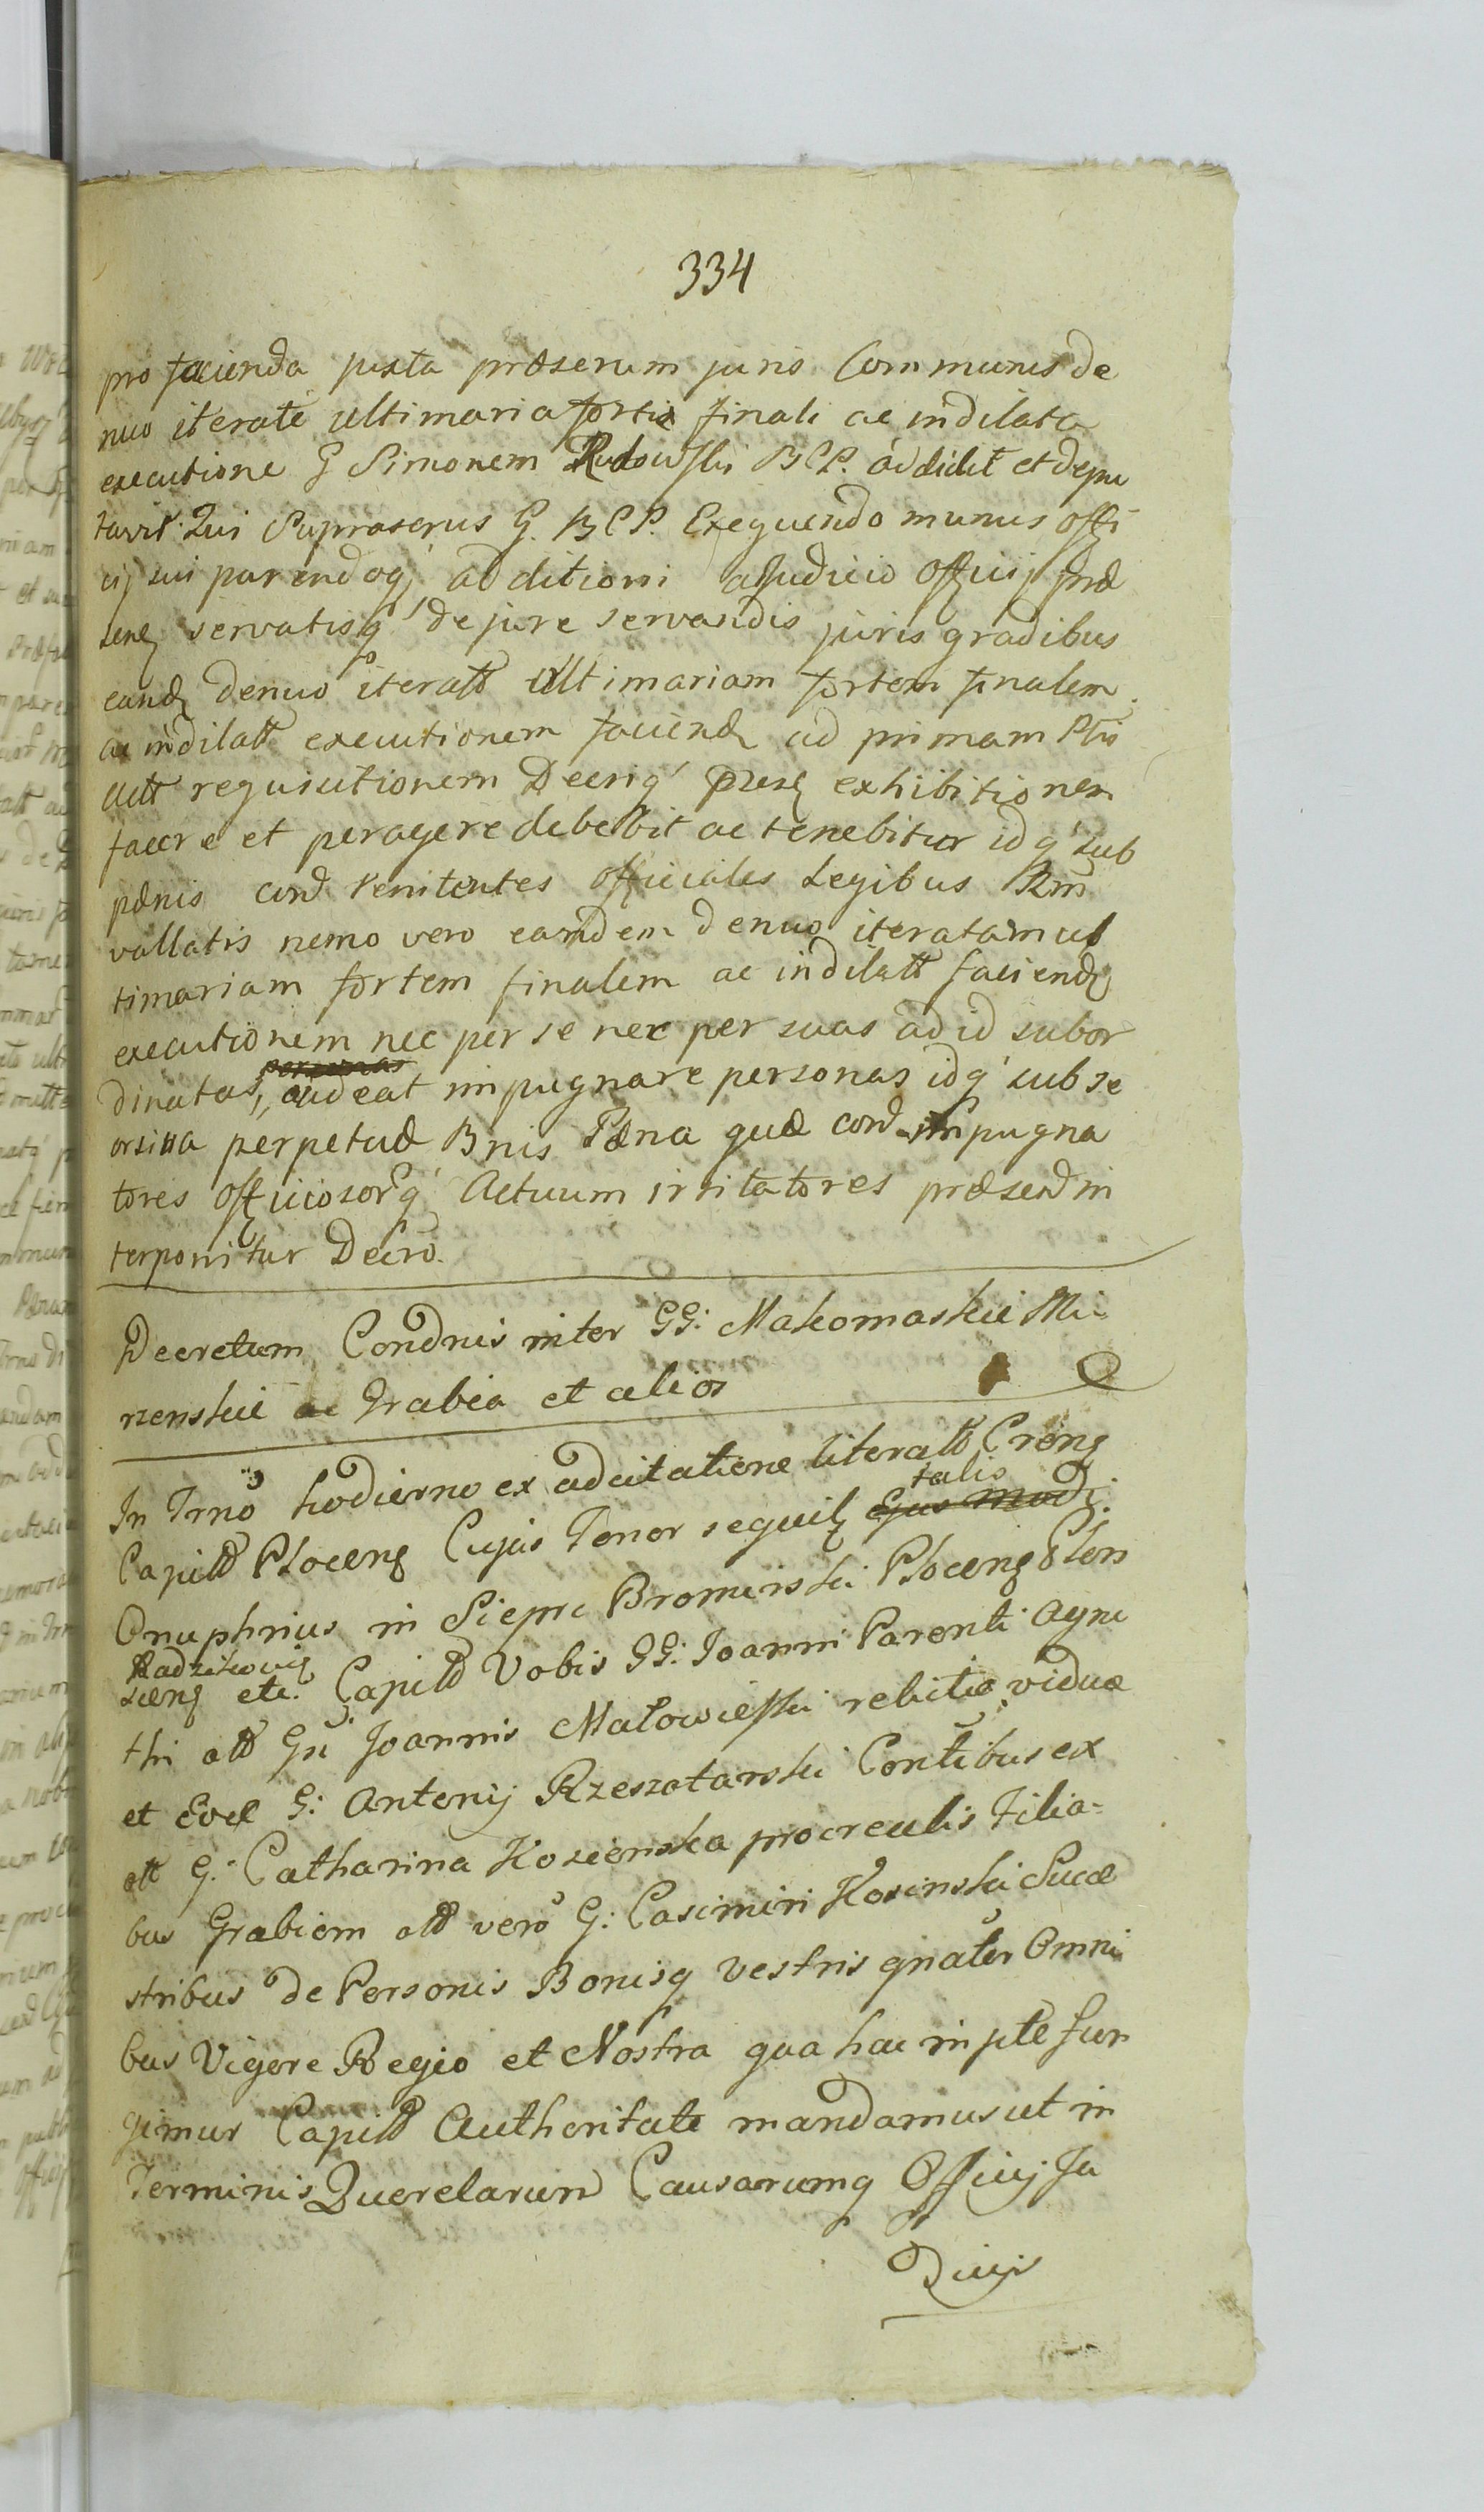 334
pro facienda juxta præserum juris Communis de
nuo iterate ultimaria forti finali ac indilata
executione G Simonem Rudowski BCP. addidit et depu
tavit Qui Supraserus G. BCP. Exequendo munus offi
cij sui parendoq additioni a Judicio Officij præ
senq servatisq de jure servandis juris gradibus
eand denuo iteratt ultimariam fortem finalem
ac indilatt executionem faciend ad primam Ptis
att requisitionem Decriq præsq exhibitionem
facere et peragere debebit ac tenebitur idq sub
pænis cond renitentes Officiales Legibus Rni
vallatis nemo vero eamdem denuo iteratam ul
timariam fortem finalem ac indilatt faciend
executionem nec per se nec per suas ad id subor
dinatas, audeat impugnare personas idq sub se
orsiva perpetuæ Bnis Pæna quæ cond impugna
tores officiosorq Actuum irritatores præsend in
terponitur Decro.
Decretum Condnis inter GG: Makomaskie Mi-
rzenskie ac Grabia et alios
In Trno hodierno ex adcitatione literatt Crenq
talis
Capitt Plocenq Cujus Tenor sequitq Ejus Modi.
Onuphrius in Siepre Bromirski Plocenq &
Radzikoviq
scenq etc. Capitt Vobis GG: Joanni Parenti Agne
thi att Gn Joannis Małowieski relictæ viduæ
et Evæ G: Antonij Rzeszotarski Contibus ex
att G: Catharina Kosienska procreatis Filia-
bus Grabiem att vero G: Casimiri Kosinski Succe
stribus de Personis Bonisq vestris gnaler Omni
bus Vigore Regio et Nostra qua hac in pte fun
gimur Capitt Authoritate mandamus ut in
Terminis Querelarum Causarumq Officij Ju
Dicij